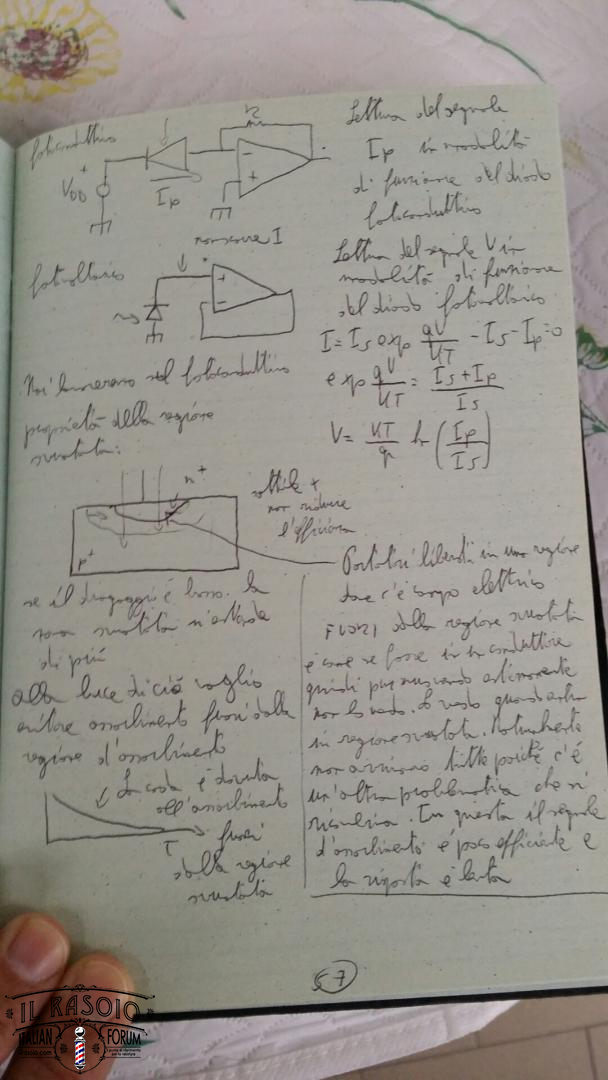 fotoconduttivo
+
V_DD
I_p
R
-
+
Lettura del segnale
I_p in modalità
di funzione del diodo
fotoconduttivo
non scorre I
fotovoltaico
+
-
Lettura del segnale V in
modalità di funzione
del diodo fotovoltaico
I = I_s exp qV/KT - I_s - I_p = 0
exp qV/KT = I_s + I_p / I_s
V = KT/q ln (I_p/I_s)
Noi lavoreremo nel fotoconduttivo
proprietà della regione
svuotata:
n+
p+
sottile x
non ridurre
l'efficienza
se il drogaggio è basso la
zona svuotata si estende
di più
alla luce di ciò voglio
evitare assorbimento fuori dalla
regione d'assorbimento
La coda è dovuta
all'assorbimento
τ fuori
dalla regione
svuotata
Portatori liberati in una regione
dove c'è campo elettrico
FUORI dalla regione svuotata
è come se fosse in un conduttore
quindi pur muovendo esternamente
non lo vedo. Lo vedo quando entra
in regione svuotata. Naturalmente
non arrivano tutte poiché c'è
un'altra problematica che si
ricombina. In questa il segnale
d'assorbimento è poco efficiente e
la risposta è lenta
57
IL RASOIO
ITALIAN FORUM